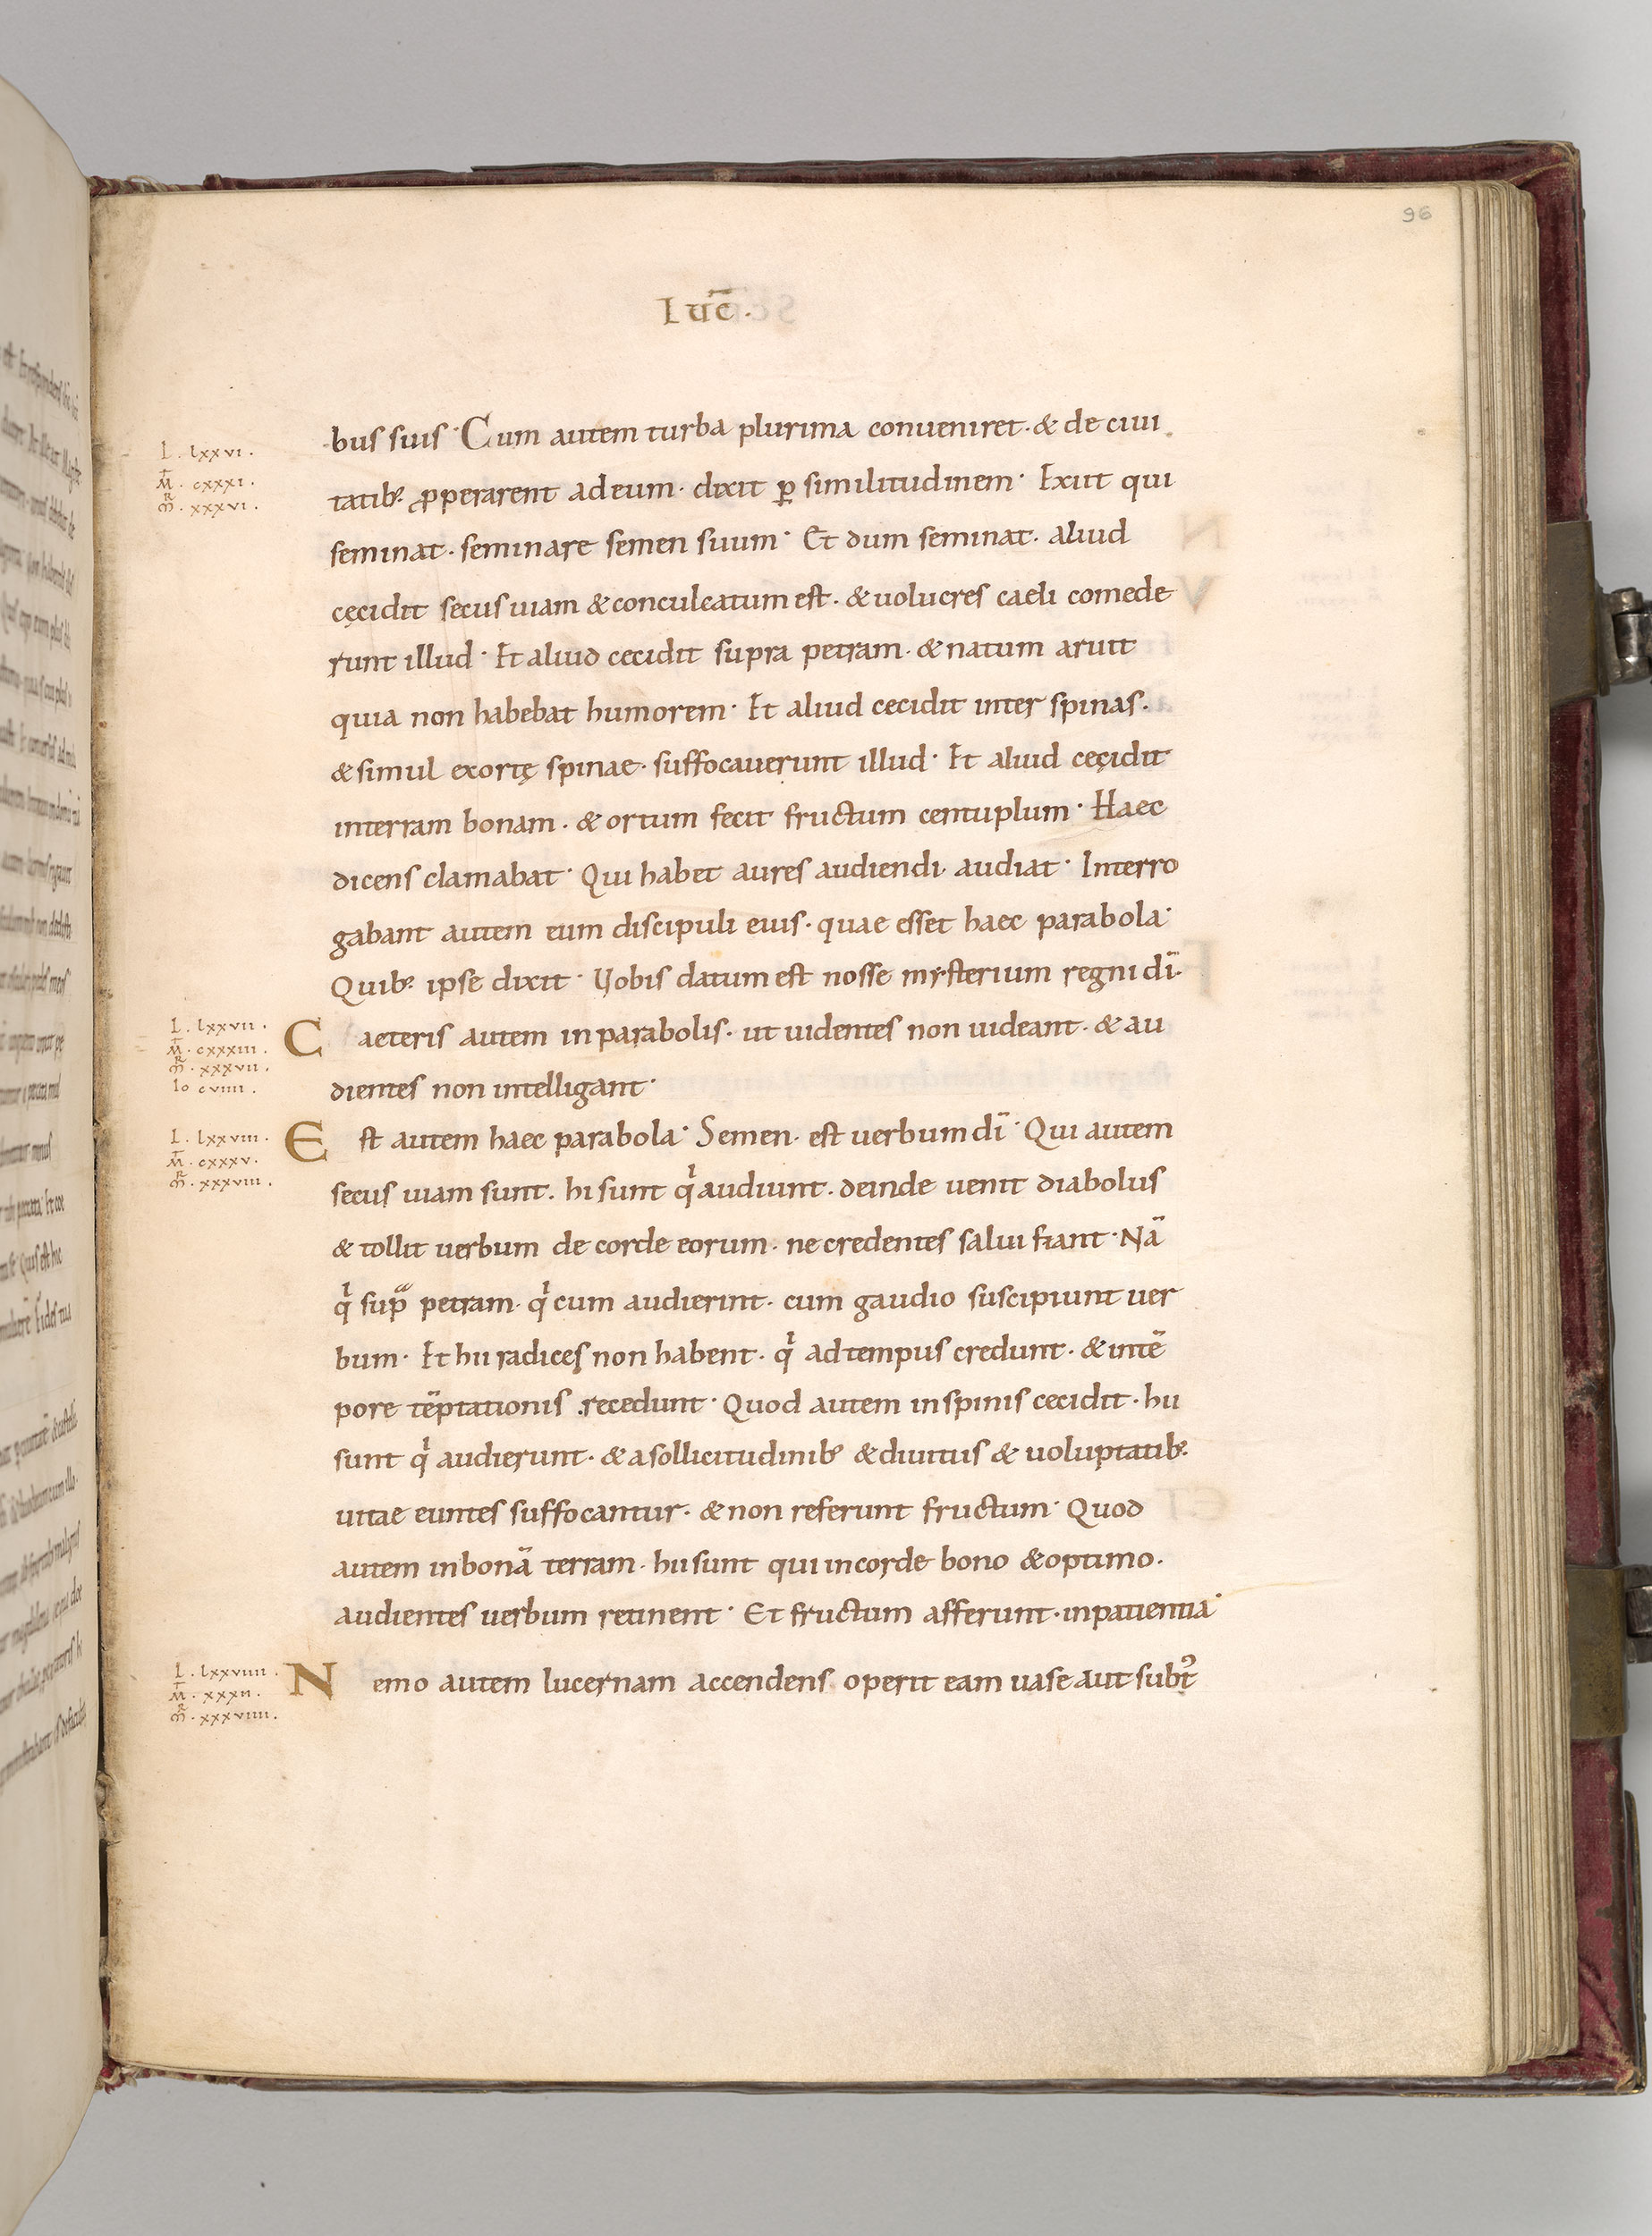 96
Luc̄.
bus suis· Cum autem turba plurima conueniret· & de ciui
L. lxxvi.
M̄. cxxxi.
M̄R. xxxvi.
tatib; ꝓperarent ad eum· dixit ꝑ similitudinem· Exiit qui
seminat· seminare semen suum· Et dum seminat· aliud
cęcidit secus uiam & conculcatum est· & uolucres caeli comede
runt illud· Et aliud cecidit supra petram· & natum aruit
quia non habebat humorem· Et aliud cecidit inter spinas·
& simul exortę spinae· suffocauerunt illud· Et aliud cecidit
interram bonam· & ortum fecit fructum centuplum· Haec
dicens clamabat· Qui habet aures audiendi· audiat· Interro
gabant autem eum discipuli eius· quae esset haec parabola·
Quib; ipse dixit· Uobis datum est nosse mysterium regni dī·
L. lxxvii.
M̄. cxxxiii.
M̄R. xxxvii.
Io cviiii.
Caeteris autem in parabolis· ut uidentes non uideant· & au
dientes non intelligant·
L. lxxviii.
M̄. cxxxv.
M̄R. xxxviii.
Est autem haec parabola· Semen· est uerbum dī· Qui autem
secus uiam sunt· hi sunt qͥ audiunt· deinde uenit diabolus
& tollit uerbum de corde eorum· ne credentes salui fiant· Nā
qͥ supᵃ petram· qͥ cum audierint· cum gaudio suscipiunt uer
bum· Et hii radices non habent· qͥ ad tempus credunt· & in tē
pore tēptationis recedunt· Quod autem in spinis cecidit· hii
sunt qͥ audierunt· & a sollicitudinib; & diuitiis & uoluptatib;
uitae euntes suffocantur· & non referunt fructum· Quod
autem in bonā terram· hii sunt qui in corde bono & optimo·
audientes uerbum retinent· Et fructum afferunt· in patientia·
L. lxxviiii.
M̄. xxxii.
M̄R. xxxviiii.
Nemo autem lucernam accendens operit eam uase aut subt᾽